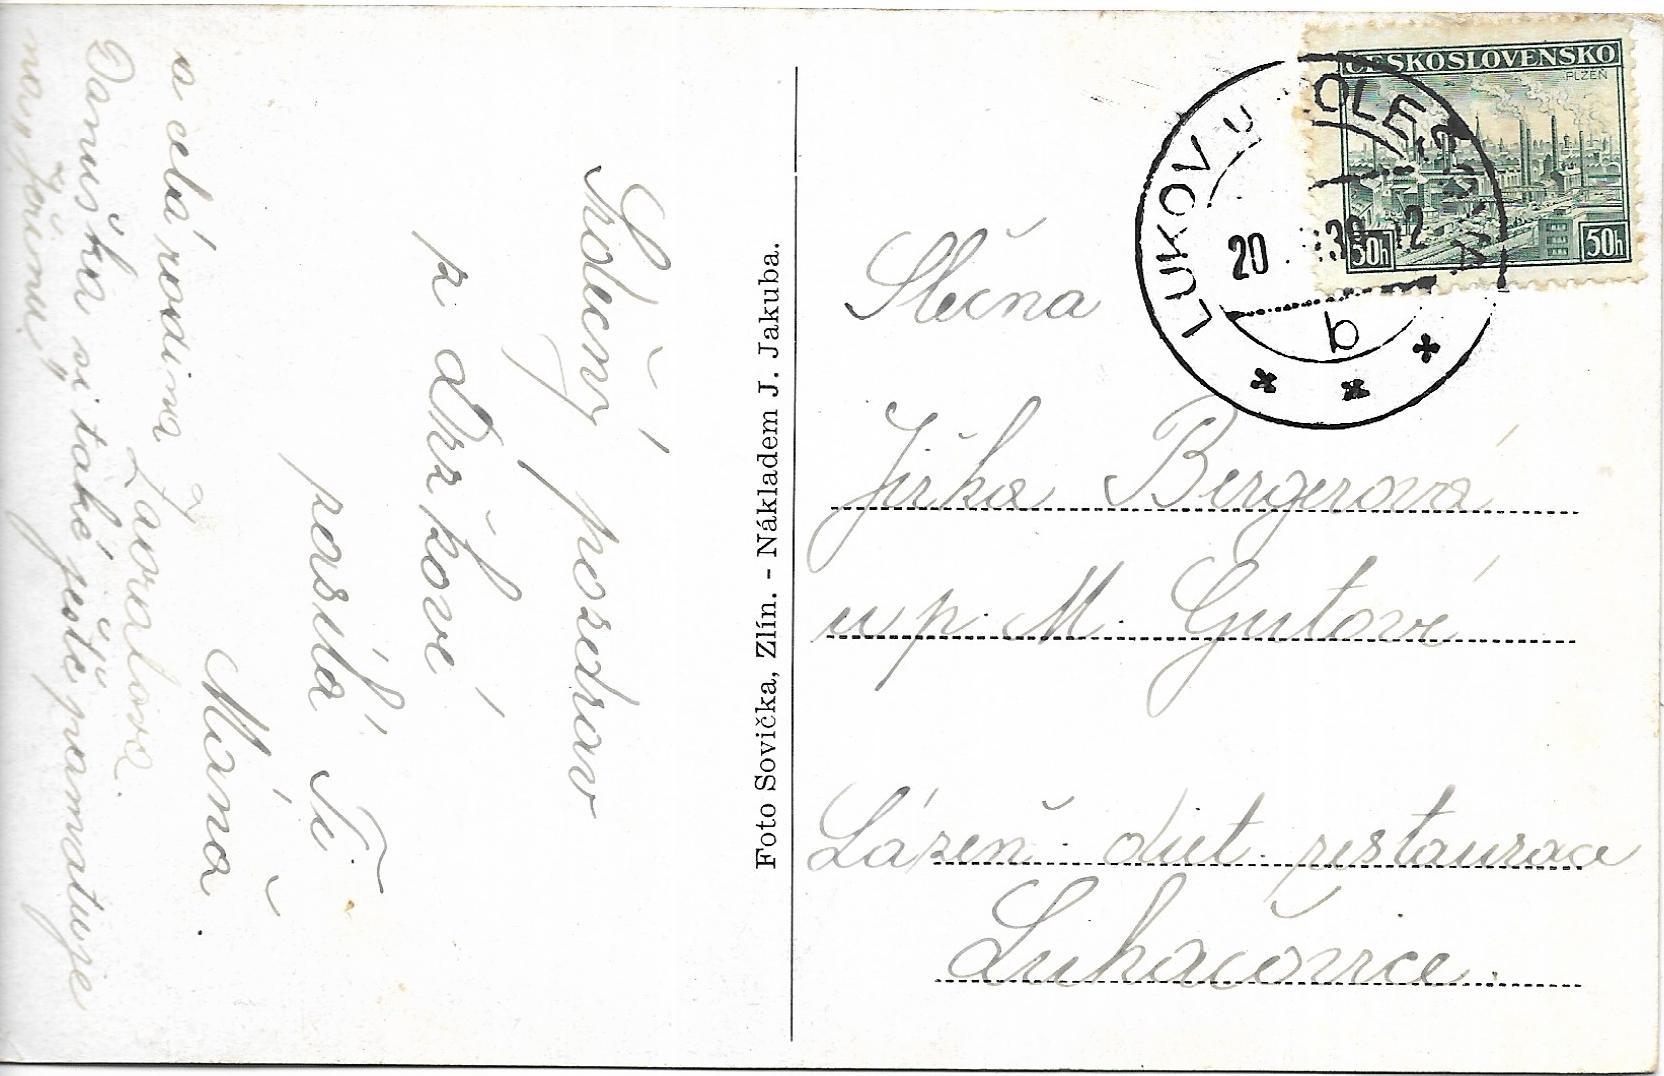 Srdečný pozdrav
z Držkové
posílá Ti
Máňa.
a celá rodina
Zavralova.
Danuška si také ještě pamatuje
na "Jořinu"
Foto Sovička, Zlín. - Nákladem J. Jakuba.
ČESKOSLOVENSKO
PLZEŇ
50h
50h
LUKOV u HOLEŠOVA
20 39 12
b
Slečna
Jiřka Bergerová
u p. M. Gutové
Lázeň. diet. restaurace
Luhačovice.